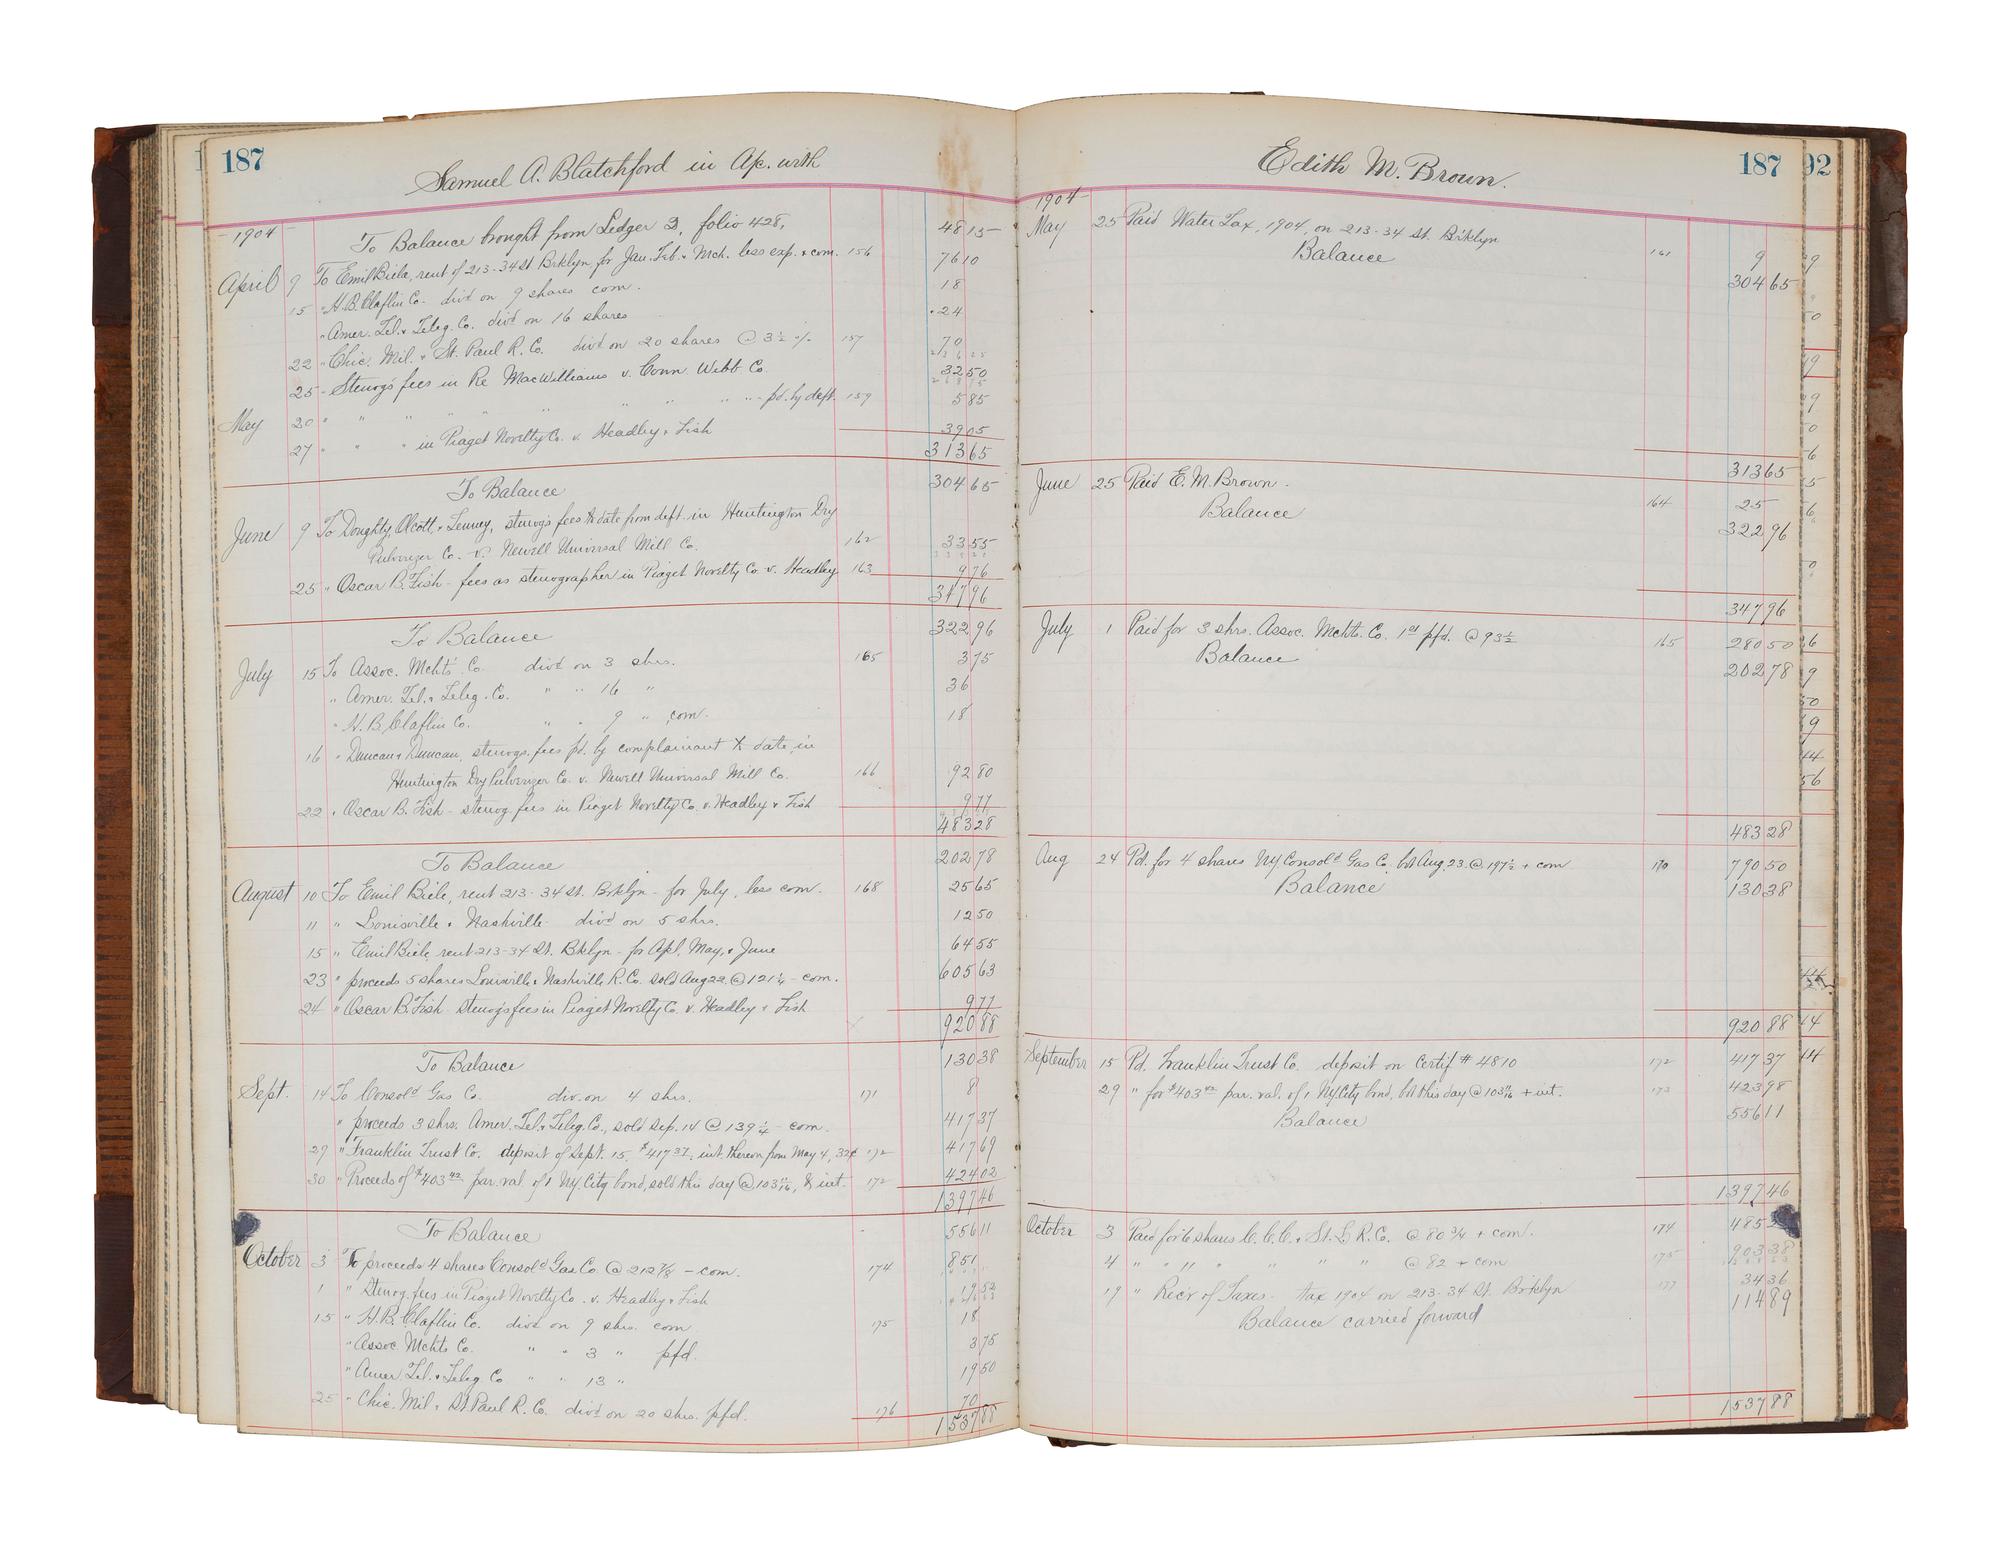 187
Samuel A. Blatchford in A/c. with
1904
To Balance brought from Ledger D, folio 428, 48 15
April 9 To Emil Biele, rent of 213-34 St Brklyn for Jan. Feb. & Mch. less exp. & com. 156 76 10
15 " H.B. Claflin Co. divd on 9 shares com. 18
" Amer. Tel. & Teleg. Co. divd on 16 shares 24
22 " Chic. Mil. & St. Paul R. Co. divd on 20 shares @ 3½ % 157 70
25 " Stenog's fees in Re MacWilliams v. Conn. Webb Co. 32 50
May 20 " " " " " " " " - pd. by deft. 159 5 85
27 " " " in Piaget Novelty Co. v. Headley & Fish 39 05
313 65
To Balance 304 65
June 9 To Doughty, Olcott, & Tenney, stenog's fees to date from deft. in Huntington Dry
Pulverizer Co. v. Newell Universal Mill Co. 162 33 55
25 " Oscar B. Fish - fees as stenographer in Piaget Novelty Co v. Headley 163 9 76
347 96
To Balance 322 96
July 15 To Assoc. Mchts. Co. divd on 3 shrs. 165 3 75
" Amer. Tel. & Teleg. Co. " " 16 " 36
" H.B. Claflin Co. " " 9 " com. 18
16 " Duncan & Duncan, stenogs. fees pd. by complainant to date, in
Huntington Dry Pulverizer Co. v. Newell Universal Mill Co. 166 92 80
22 " Oscar B. Fish - stenog. fees in Piaget Novelty Co. v. Headley & Fish 9 77
483 28
To Balance 202 78
August 10 To Emil Biele, rent 213-34 St. Brklyn - for July, less com. 168 25 65
11 " Louisville & Nashville divd on 5 shrs. 12 50
15 " Emil Biele rent 213-34 St. Bklyn - for Apl, May, & June 64 55
23 " proceeds 5 shares Louisville & Nashville R. Co. sold Aug 22 @ 121¼ - com. 605 63
24 " Oscar B. Fish - stenog's fees in Piaget Novelty Co. v. Headley & Fish 9 77
920 88
To Balance 130 38
Sept. 14 To Consold Gas Co. div. on 4 shrs. 171 8
" proceeds 3 shrs. Amer. Tel. & Teleg. Co., sold Sep. 14 @ 139¼ - com. 417 37
29 " Franklin Trust Co. deposit of Sept. 15, $417 37, int. thereon from May 4, 32¢ 172 417 69
30 " Proceeds of $403 42 par. val. of 1 NY. City bond, sold this day @ 103 11/16, & int. 172 424 02
1397 46
To Balance 556 11
October 3 To proceeds 4 shares Consold Gas Co. @ 212⅞ - com. 174 851
1 " Stenog. fees in Piaget Novelty Co. v. Headley & Fish 19 52
15 " H.B. Claflin Co. divd on 9 shrs. com 175 18
" Assoc Mchts Co. " " 3 " pfd. 3 75
" Amer Tel. & Teleg Co " " 13 " 19 50
25 " Chic. Mil & St. Paul R. Co. divd on 20 shrs. pfd. 176 70
1537 88
Edith M. Brown.
187
92
1904
May 25 Paid Water Tax, 1904, on 213-34 St. Brklyn 161 9
Balance 304 65
313 65
June 25 Paid E. M. Brown. 164 25
Balance 322 96
347 96
July 1 Paid for 3 shrs. Assoc. Mchts. Co. 1st pfd. @ 93½ 165 280 50
Balance 202 78
483 28
Aug 24 Pd. for 4 shares NY Consold Gas Co, bot Aug. 23 @ 197½ + com 170 790 50
Balance 130 38
920 88
September 15 Pd. Franklin Trust Co. deposit on Certif # 4810 172 417 37
29 " for $403 42 par. val. of 1 NY City bond, bot this day @ 103 11/16 + int. 173 423 98
Balance 556 11
1397 46
October 3 Paid for 6 shares C.C.C. & St. L R. Co. @ 80¾ + com. 174 485
4 " " " " " " " @ 82 + com 175 903 38
19 " Recr of Taxes - tax 1904 on 213-34 St. Brklyn 177 34 36
Balance carried forward 114 89
1537 88